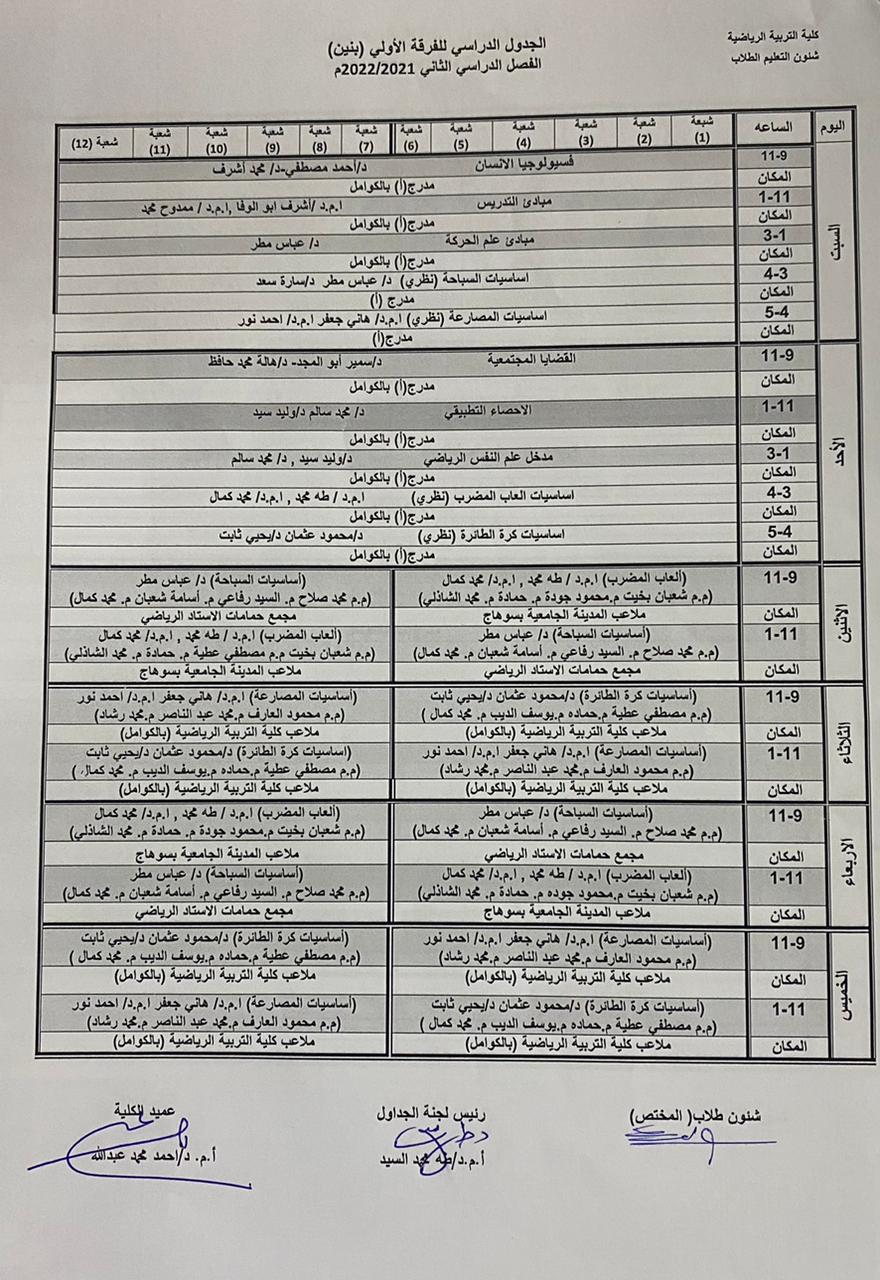 كلية التربية الرياضية
شئون التعليم الطلاب
الجدول الدراسي للفرقة الأولي (بنين)
الفصل الدراسي الثاني 2022/2021م
اليوم الساعه شبعة (1) شعبة (2) شعبة (3) شعبة (4) شعبة (5) شعبة (6) شعبة (7) شعبة (8) شعبة (9) شعبة (10) شعبة (11) شعبة (12)
السبت
11-9 فسيولوجيا الانسان د/أحمد مصطفي-د/ محمد أشرف
المكان مدرج(أ) بالكوامل
1-11 مبادئ التدريس ا.م.د /أشرف ابو الوفا ,ا.م.د / ممدوح محمد
المكان مدرج(أ) بالكوامل
3-1 مبادئ علم الحركة د/ عباس مطر
المكان مدرج(أ) بالكوامل
4-3 اساسيات السباحة (نظري) د/ عباس مطر د/سارة سعد
المكان مدرج (أ)
5-4 اساسيات المصارعة (نظري) ا.م.د/ هاني جعفر ا.م.د/ احمد نور
المكان مدرج(أ)
الأحد
11-9 القضايا المجتمعية د/سمير أبو المجد- د/هالة محمد حافظ
المكان مدرج(أ) بالكوامل
1-11 الاحصاء التطبيقي د/ محمد سالم د/وليد سيد
المكان مدرج(أ) بالكوامل
3-1 مدخل علم النفس الرياضي د/وليد سيد , د/ محمد سالم
المكان مدرج(أ) بالكوامل
4-3 اساسيات العاب المضرب (نظري) ا.م.د / طه محمد , ا.م.د/ محمد كمال
المكان مدرج(أ) بالكوامل
5-4 اساسيات كرة الطائرة (نظري) د/محمود عثمان د/يحيي ثابت
المكان مدرج(أ) بالكوامل
الاثنين
11-9 (ألعاب المضرب) ا.م.د / طه محمد , ا.م.د/ محمد كمال (أساسيات السباحة) د/ عباس مطر
(م.م شعبان بخيت م.محمود جودة م. حمادة م. محمد الشاذلي) (م.م محمد صلاح م. السيد رفاعي م. أسامة شعبان م. محمد كمال)
المكان ملاعب المدينة الجامعية بسوهاج مجمع حمامات الاستاد الرياضي
1-11 (أساسيات السباحة) د/ عباس مطر (ألعاب المضرب) ا.م.د / طه محمد , ا.م.د/ محمد كمال
(م.م محمد صلاح م. السيد رفاعي م. أسامة شعبان م. محمد كمال) (م.م شعبان بخيت م.م مصطفي عطية م. حمادة م. محمد الشاذلي)
المكان مجمع حمامات الاستاد الرياضي ملاعب المدينة الجامعية بسوهاج
الثلاثاء
11-9 (أساسيات كرة الطائرة) د/محمود عثمان د/يحيي ثابت (أساسيات المصارعة) ا.م.د/ هاني جعفر ا.م.د/ احمد نور
(م.م مصطفي عطية م.حماده م.يوسف الديب م. محمد كمال ) (م.م محمود العارف م.محمد عبد الناصر م.محمد رشاد)
المكان ملاعب كلية التربية الرياضية (بالكوامل) ملاعب كلية التربية الرياضية (بالكوامل)
1-11 (أساسيات المصارعة) ا.م.د/ هاني جعفر ا.م.د/ احمد نور (اساسيات كرة الطائرة) د/محمود عثمان د/يحيي ثابت
(م.م محمود العارف م.محمد عبد الناصر م.محمد رشاد) (م.م مصطفي عطية م.حماده م.يوسف الديب م. محمد كمال )
المكان ملاعب كلية التربية الرياضية (بالكوامل) ملاعب كلية التربية الرياضية (بالكوامل)
الاربعاء
11-9 (أساسيات السباحة) د/ عباس مطر (ألعاب المضرب) ا.م.د / طه محمد , ا.م.د/ محمد كمال
(م.م محمد صلاح م. السيد رفاعي م. أسامة شعبان م. محمد كمال) (م.م شعبان بخيت م.محمود جودة م. حمادة م. محمد الشاذلي)
المكان مجمع حمامات الاستاد الرياضي ملاعب المدينة الجامعية بسوهاج
1-11 (ألعاب المضرب) ا.م.د / طه محمد , ا.م.د/ محمد كمال (أساسيات السباحة) د/ عباس مطر
(م.م شعبان بخيت م.محمود جوده م. حمادة م. محمد الشاذلي) (م.م محمد صلاح م. السيد رفاعي م. أسامة شعبان م. محمد كمال)
المكان ملاعب المدينة الجامعية بسوهاج مجمع حمامات الاستاد الرياضي
الخميس
11-9 (أساسيات المصارعة) ا.م.د/ هاني جعفر ا.م.د/ احمد نور (أساسيات كرة الطائرة) د/محمود عثمان د/يحيي ثابت
(م.م محمود العارف م.محمد عبد الناصر م.محمد رشاد) (م.م مصطفي عطية م.حماده م.يوسف الديب م. محمد كمال )
المكان ملاعب كلية التربية الرياضية (بالكوامل) ملاعب كلية التربية الرياضية (بالكوامل)
1-11 (أساسيات كرة الطائرة) د/محمود عثمان د/يحيي ثابت (أساسيات المصارعة) ا.م.د/ هاني جعفر ا.م.د/ احمد نور
(م.م مصطفي عطية م.حماده م.يوسف الديب م. محمد كمال ) (م.م محمود العارف م.محمد عبد الناصر م.محمد رشاد)
المكان ملاعب كلية التربية الرياضية (بالكوامل) ملاعب كلية التربية الرياضية (بالكوامل)
شئون طلاب( المختص) رئيس لجنة الجداول عميد الكلية
أ.م.د/طه محمد السيد أ.م. د/احمد محمد عبدالله